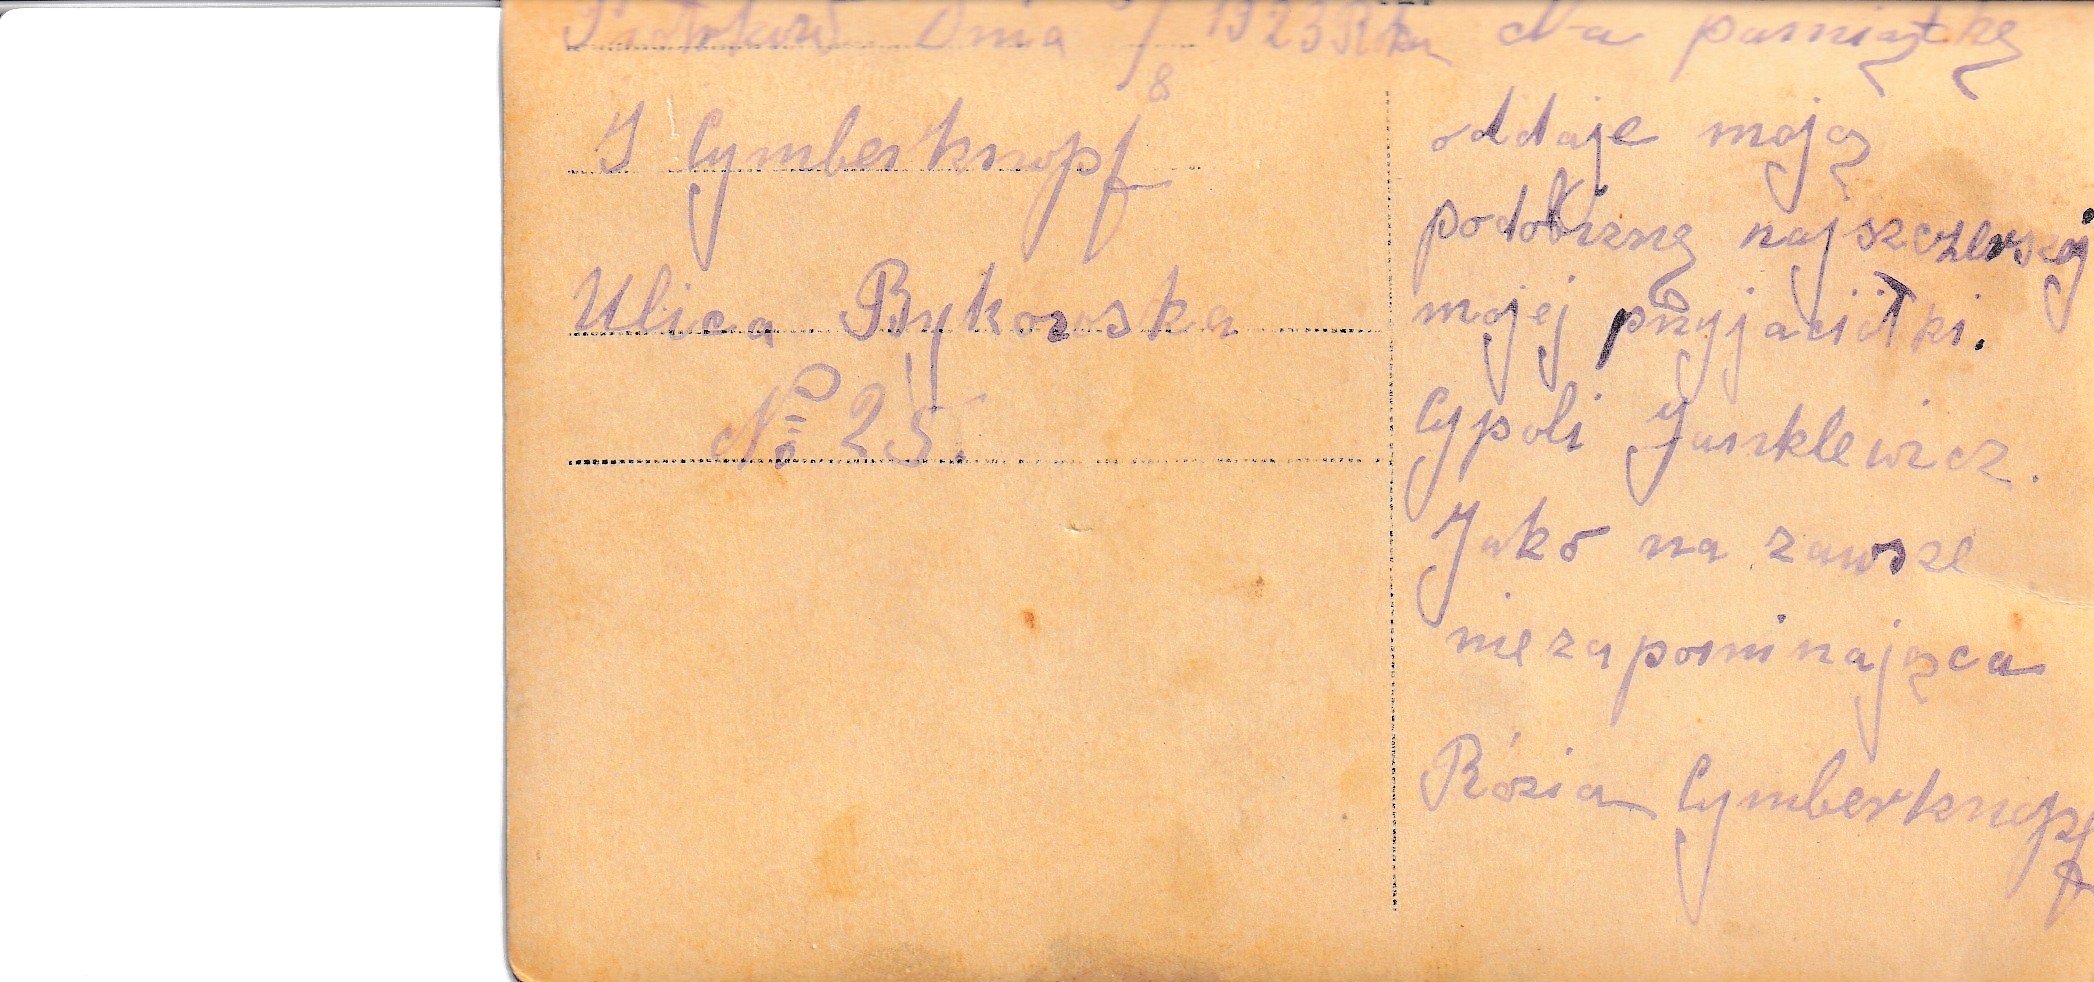 Piotrków Dnia /8 1923 Roku
J Cymberknopf
Ulica Bykowska
№ 25.
Na pamiątkę
oddaje moją
podobiznę najszczerszej
mojej przyjaciółki.
Cypoli Jurklewicz.
Jako na zawsze
niezapominająca
Rózia Cymberknopf